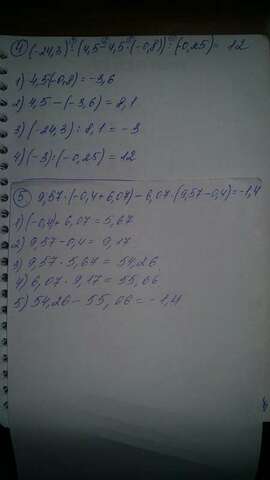 ④ (-24,3) : (4,5 - 4,5 · (-0,8)) : (-0,25) = 12
1) 4,5·(-0,8) = -3,6
2) 4,5 - (-3,6) = 8,1
3) (-24,3) : 8,1 = -3
4) (-3) : (-0,25) = 12
⑤ 9,57 · (-0,4 + 6,07) - 6,07 · (9,57 - 0,4) = -1,4
1) (-0,4) + 6,07 = 5,67
2) 9,57 - 0,4 = 9,17
3) 9,57 · 5,67 = 54,26
4) 6,07 · 9,17 = 55,66
5) 54,26 - 55,66 = -1,4